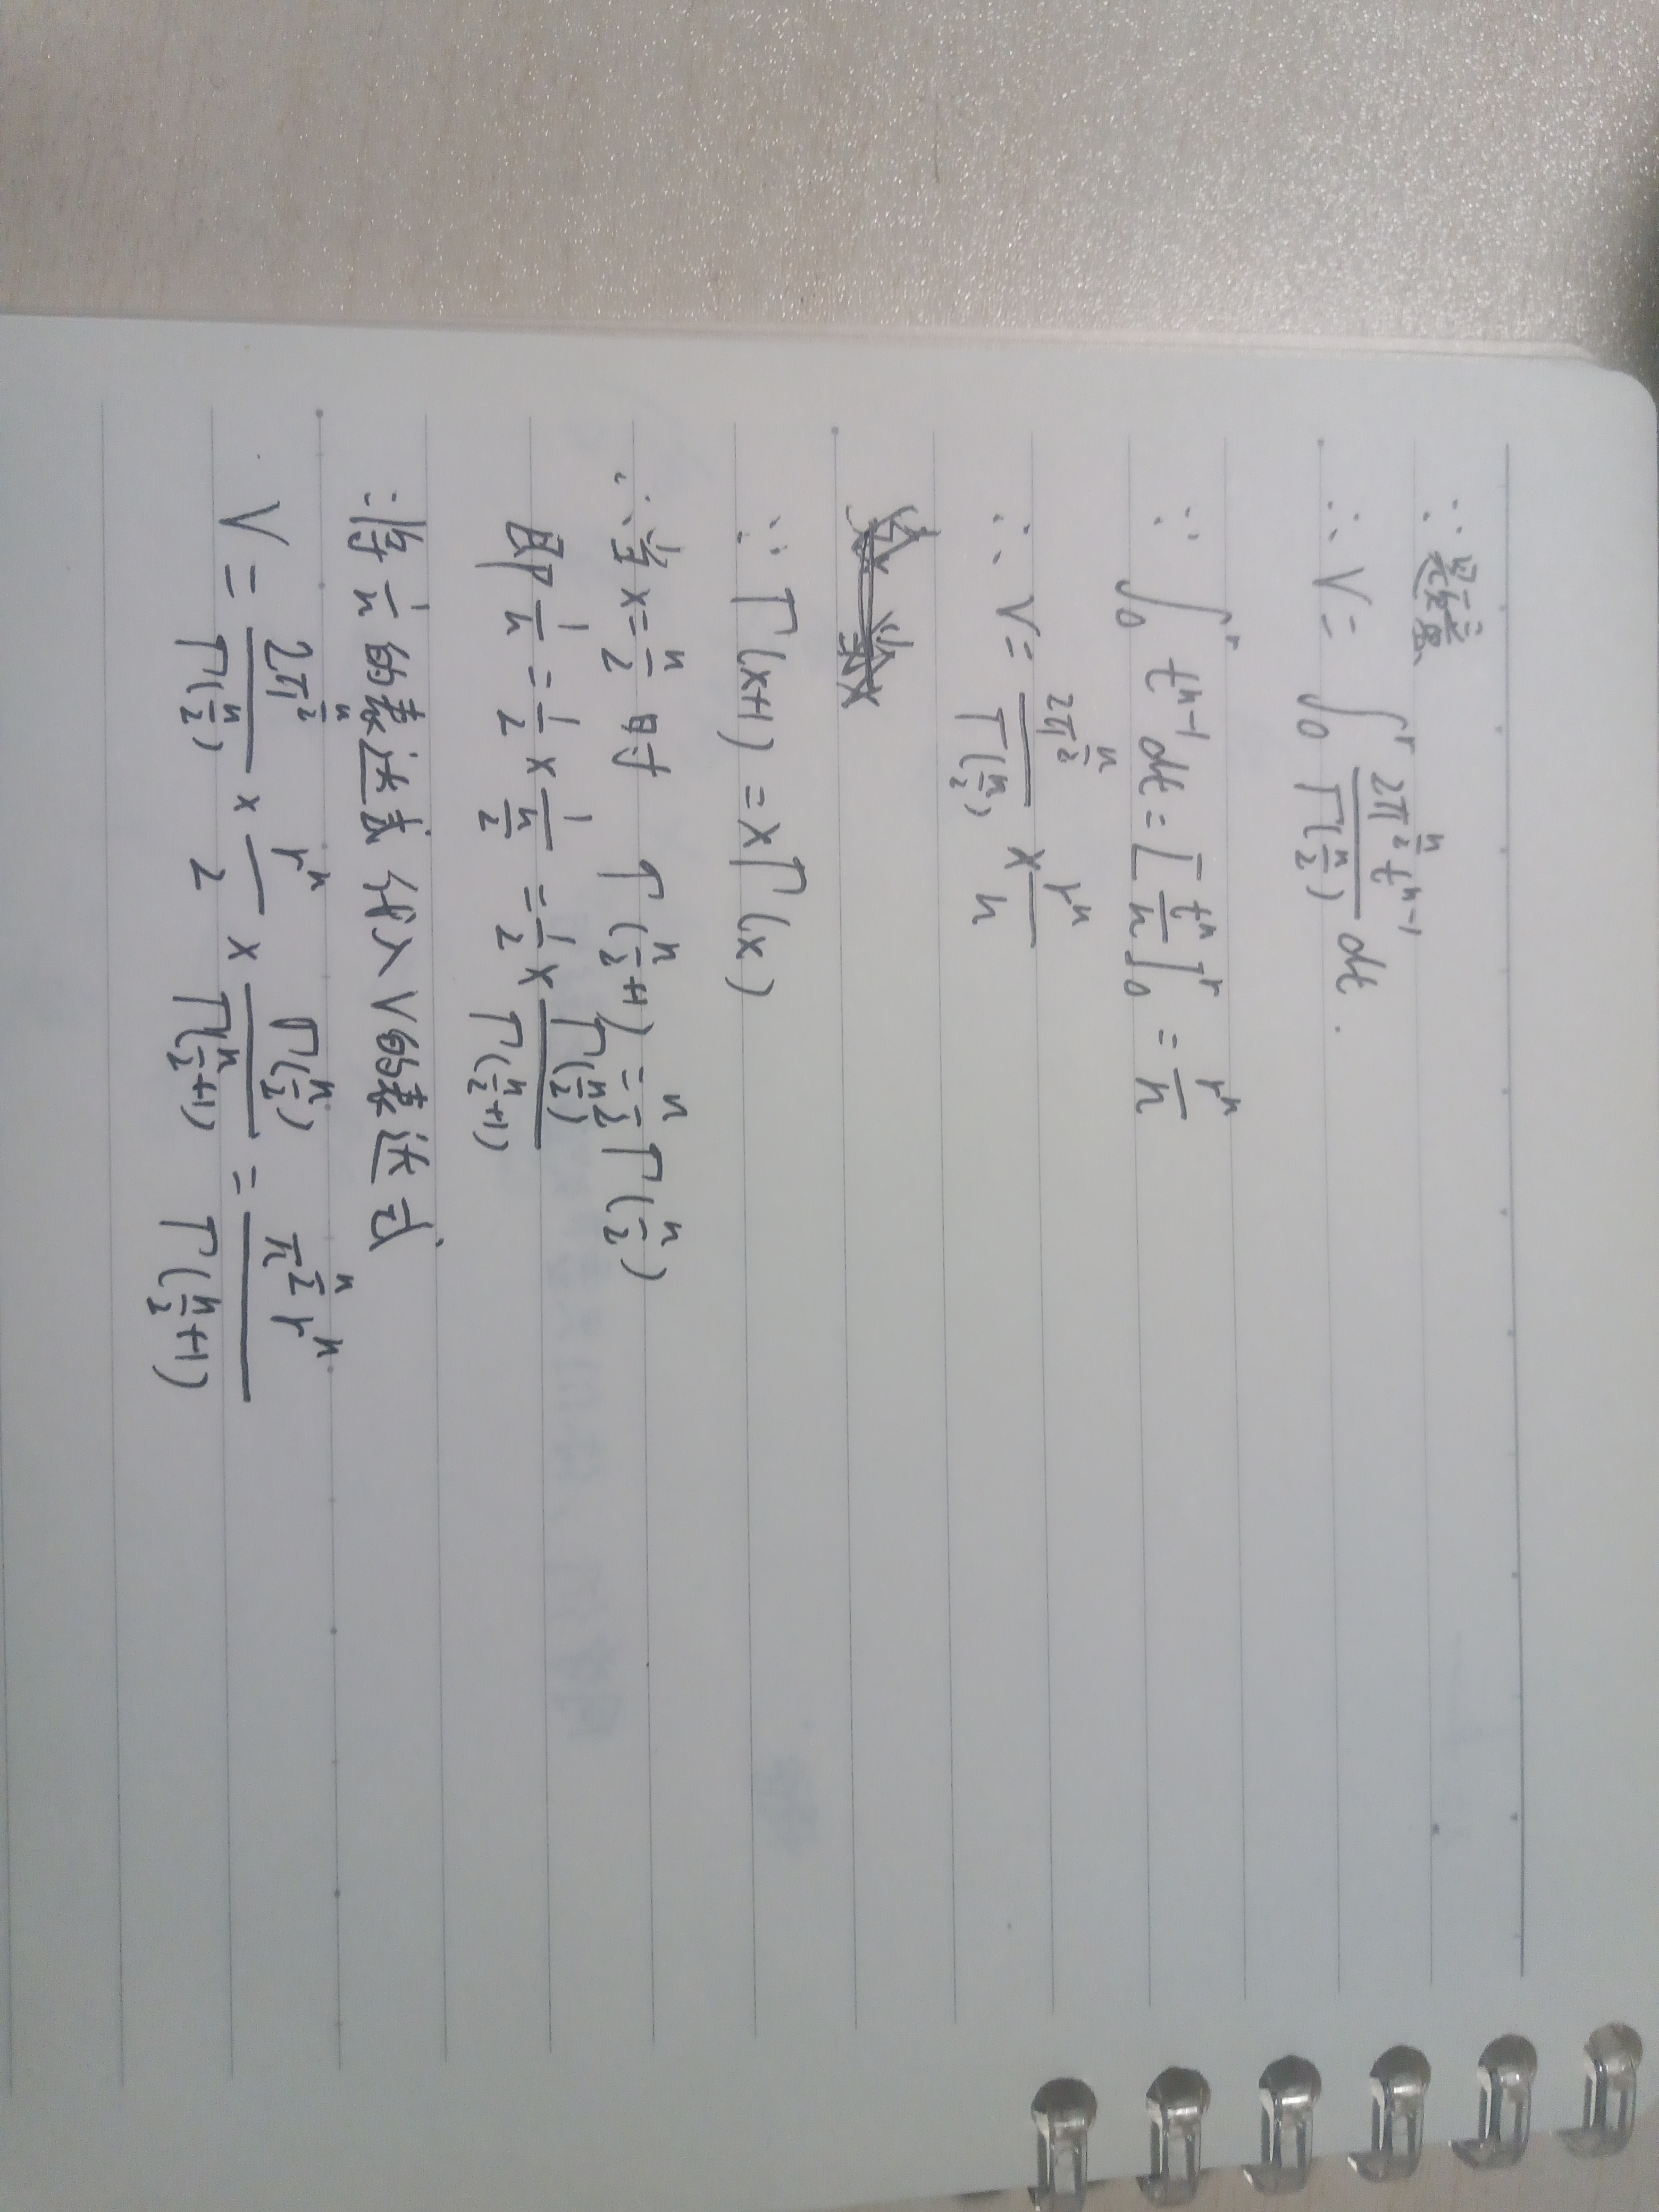 ∴ V = ∫₀ʳ 2π^(n/2) t^(n-1) / Γ(n/2) dt.
∵ ∫₀ʳ t^(n-1) dt = [t^n / n]₀ʳ = r^n / n
∴ V = 2π^(n/2) / Γ(n/2) × r^n / n
∵ Γ(x+1) = xΓ(x)
∴ 当 x = n/2 时 Γ(n/2+1) = n/2 Γ(n/2)
即 1/n = 1/2 × 1/(n/2) = 1/2 × Γ(n/2) / Γ(n/2+1)
∴ 将 1/n 的表达式代入V的表达式
V = 2π^(n/2) / Γ(n/2) × r^n / 2 × Γ(n/2) / Γ(n/2+1) = π^(n/2) r^n / Γ(n/2+1)